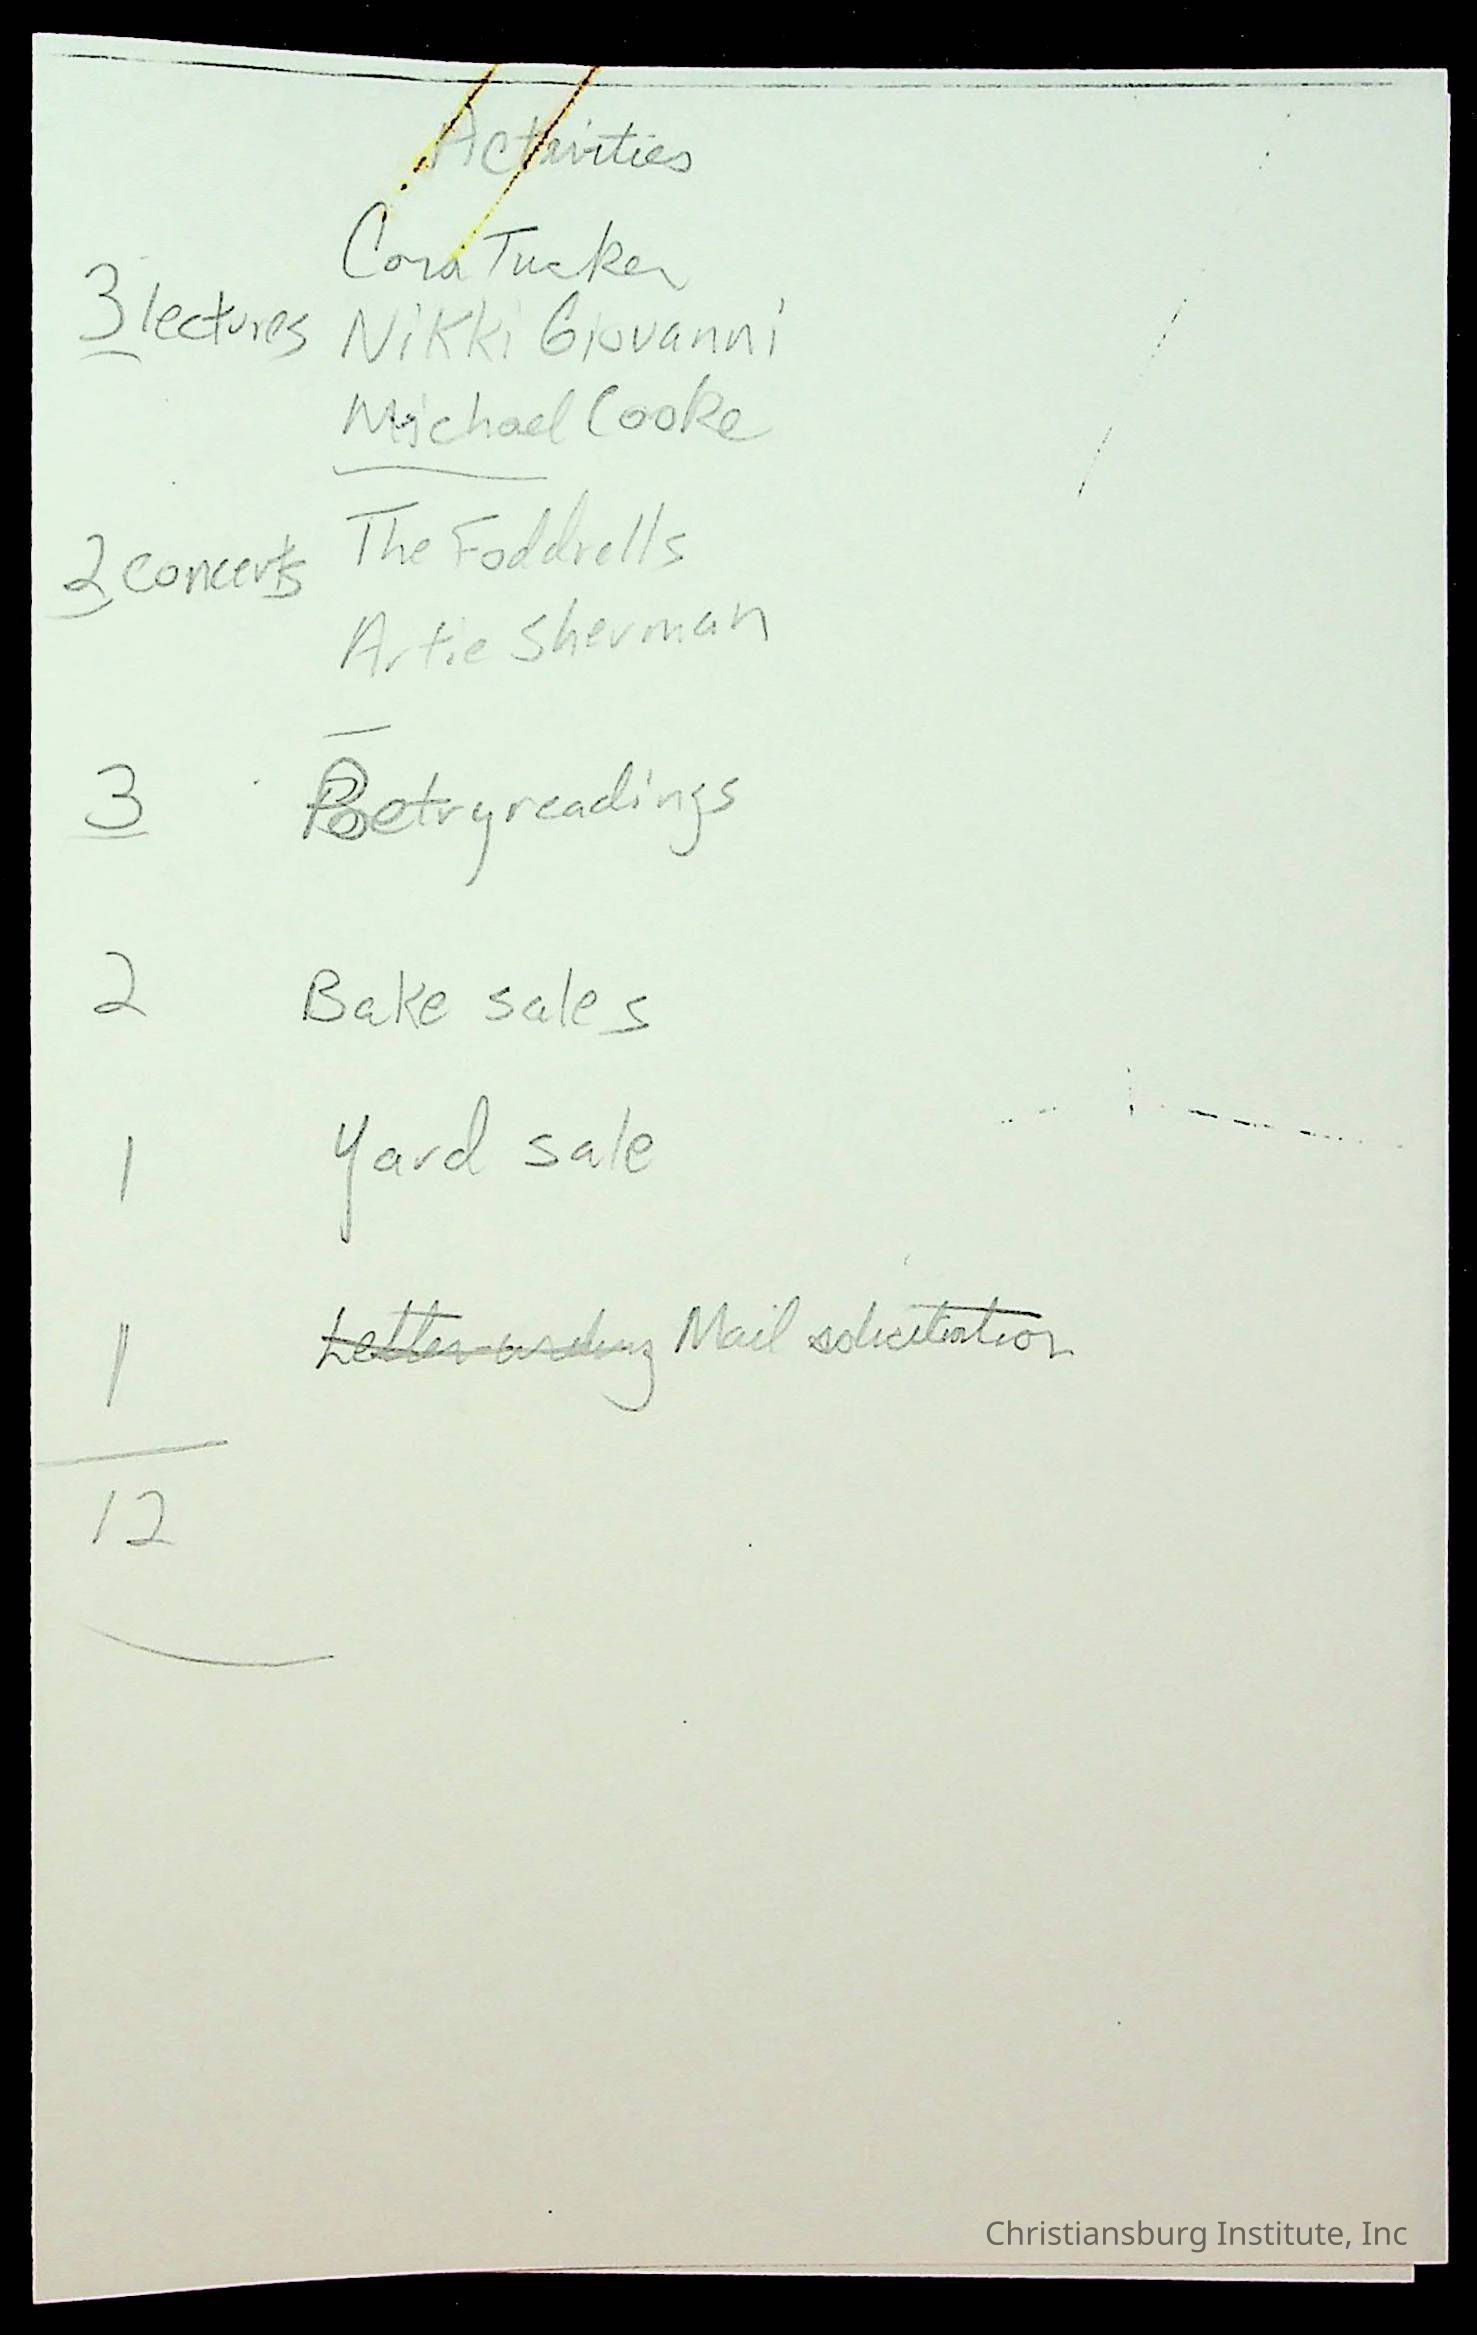 Activities
Cora Tucker
3 lectures Nikki Giovanni
Michael Cooke
The Foddrells
2 concerts
Artie Sherman
3 Poetry readings
2 Bake sales
1 Yard sale
1 Letter writing Mail solicitation
12
Christiansburg Institute, Inc